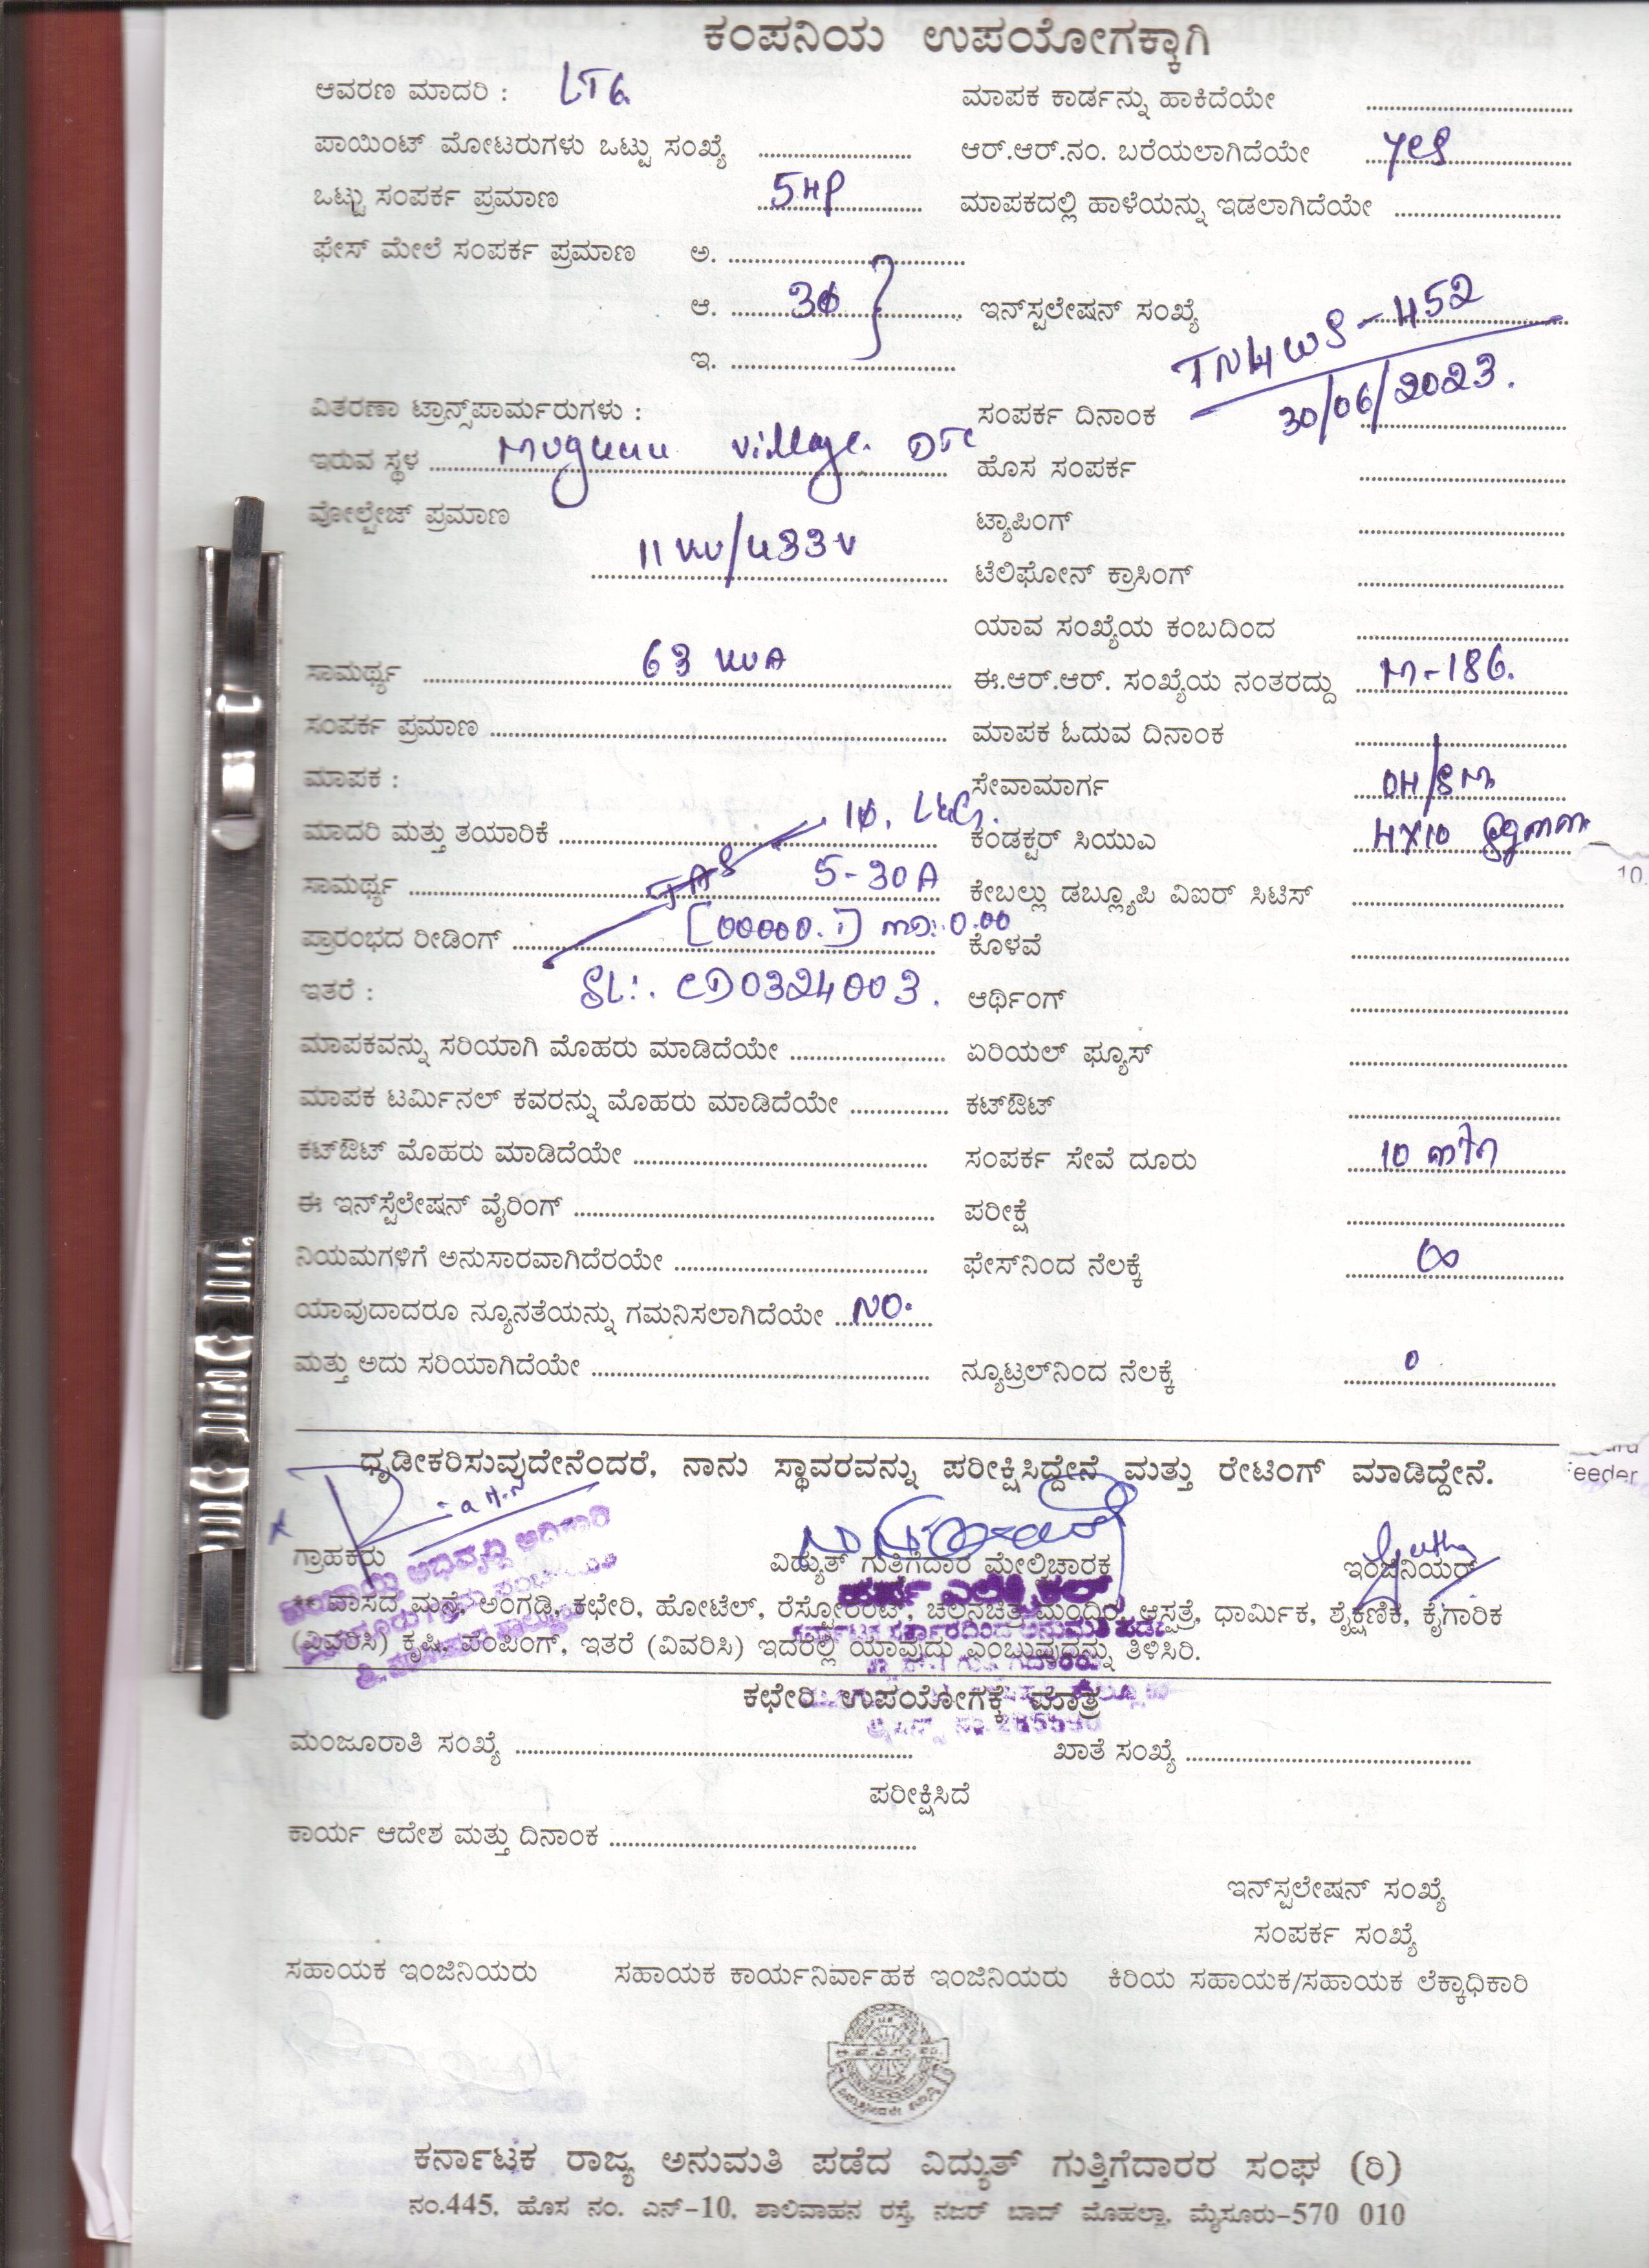 ಕಂಪನಿಯ ಉಪಯೋಗಕ್ಕಾಗಿ
ಆವರಣ ಮಾದರಿ : LT6 ಮಾಪಕ ಕಾರ್ಡನ್ನು ಹಾಕಿದೆಯೇ
ಪಾಯಿಂಟ್ ಮೋಟರುಗಳು ಒಟ್ಟು ಸಂಖ್ಯೆ ಆರ್.ಆರ್.ನಂ. ಬರೆಯಲಾಗಿದೆಯೇ yes
ಒಟ್ಟು ಸಂಪರ್ಕ ಪ್ರಮಾಣ 5HP ಮಾಪಕದಲ್ಲಿ ಹಾಳೆಯನ್ನು ಇಡಲಾಗಿದೆಯೇ
ಫೇಸ್ ಮೇಲೆ ಸಂಪರ್ಕ ಪ್ರಮಾಣ ಅ.
ಆ. 3ϕ ಇನ್‌ಸ್ಟಲೇಷನ್ ಸಂಖ್ಯೆ TNHWS-452
ಇ.
ವಿತರಣಾ ಟ್ರಾನ್ಸ್‌ಪಾರ್ಮರುಗಳು : ಸಂಪರ್ಕ ದಿನಾಂಕ 30/06/2023.
ಇರುವ ಸ್ಥಳ village ಹೊಸ ಸಂಪರ್ಕ
ವೋಲ್ಟೇಜ್ ಪ್ರಮಾಣ 11 KV/433V ಟ್ಯಾಪಿಂಗ್
ಟೆಲಿಫೋನ್ ಕ್ರಾಸಿಂಗ್
ಯಾವ ಸಂಖ್ಯೆಯ ಕಂಬದಿಂದ
ಸಾಮರ್ಥ್ಯ 63 KVA ಈ.ಆರ್.ಆರ್. ಸಂಖ್ಯೆಯ ನಂತರದ್ದು M-186.
ಸಂಪರ್ಕ ಪ್ರಮಾಣ ಮಾಪಕ ಓದುವ ದಿನಾಂಕ
ಮಾಪಕ : ಸೇವಾಮಾರ್ಗ OH/SM
ಮಾದರಿ ಮತ್ತು ತಯಾರಿಕೆ L&G. ಕಂಡಕ್ಟರ್ ಸಿಯುಎ 4X10 Sqmm
ಸಾಮರ್ಥ್ಯ 5-30A ಕೇಬಲ್ಲು ಡಬ್ಲ್ಯೂಪಿ ವಿಐರ್ ಸಿಟಿಸ್
ಪ್ರಾರಂಭದ ರೀಡಿಂಗ್ [00000.1] MD: 0.00 ಕೊಳವೆ
ಇತರೆ : SL:. CD0324003. ಆರ್ಥಿಂಗ್
ಮಾಪಕವನ್ನು ಸರಿಯಾಗಿ ಮೊಹರು ಮಾಡಿದೆಯೇ ಏರಿಯಲ್ ಫ್ಯೂಸ್
ಮಾಪಕ ಟರ್ಮಿನಲ್ ಕವರನ್ನು ಮೊಹರು ಮಾಡಿದೆಯೇ ಕಟ್‌ಔಟ್
ಕಟ್‌ಔಟ್ ಮೊಹರು ಮಾಡಿದೆಯೇ ಸಂಪರ್ಕ ಸೇವೆ ದೂರು 10 mtr
ಈ ಇನ್‌ಸ್ಟೆಲೇಷನ್ ವೈರಿಂಗ್ ಪರೀಕ್ಷೆ
ನಿಯಮಗಳಿಗೆ ಅನುಸಾರವಾಗಿದೆರಯೇ ಫೇಸ್‌ನಿಂದ ನೆಲಕ್ಕೆ ∞
ಯಾವುದಾದರೂ ನ್ಯೂನತೆಯನ್ನು ಗಮನಿಸಲಾಗಿದೆಯೇ NO.
ಮತ್ತು ಅದು ಸರಿಯಾಗಿದೆಯೇ ನ್ಯೂಟ್ರಲ್‌ನಿಂದ ನೆಲಕ್ಕೆ 0
ಧೃಡೀಕರಿಸುವುದೇನೆಂದರೆ, ನಾನು ಸ್ಥಾವರವನ್ನು ಪರೀಕ್ಷಿಸಿದ್ದೇನೆ ಮತ್ತು ರೇಟಿಂಗ್ ಮಾಡಿದ್ದೇನೆ.
eeder
ಗ್ರಾಹಕರು ವಿದ್ಯುತ್ ಗುತ್ತಿಗೆದಾರ ಮೇಲ್ವಿಚಾರಕ ಇಂಜಿನಿಯರ್
ವಾಸದ ಮನೆ, ಅಂಗಡಿ, ಕಛೇರಿ, ಹೋಟೆಲ್, ರೆಸ್ಟೋರೆಂಟ್, ಚಲನಚಿತ್ರ ಮಂದಿರ, ಆಸ್ಪತ್ರೆ, ಧಾರ್ಮಿಕ, ಶೈಕ್ಷಣಿಕ, ಕೈಗಾರಿಕ
(ವಿವರಿಸಿ) ಕೃಷಿ, ಪಂಪಿಂಗ್, ಇತರೆ (ವಿವರಿಸಿ) ಇದರಲ್ಲಿ ಯಾವುದು ಎಂಬುವುದನ್ನು ತಿಳಿಸಿರಿ.
ಕಛೇರಿ ಉಪಯೋಗಕ್ಕೆ ಮಾತ್ರ
ಮಂಜೂರಾತಿ ಸಂಖ್ಯೆ ಖಾತೆ ಸಂಖ್ಯೆ
ಪರೀಕ್ಷಿಸಿದೆ
ಕಾರ್ಯ ಆದೇಶ ಮತ್ತು ದಿನಾಂಕ
ಇನ್‌ಸ್ಟಲೇಷನ್ ಸಂಖ್ಯೆ
ಸಂಪರ್ಕ ಸಂಖ್ಯೆ
ಸಹಾಯಕ ಇಂಜಿನಿಯರು ಸಹಾಯಕ ಕಾರ್ಯನಿರ್ವಾಹಕ ಇಂಜಿನಿಯರು ಕಿರಿಯ ಸಹಾಯಕ/ಸಹಾಯಕ ಲೆಕ್ಕಾಧಿಕಾರಿ
ಕರ್ನಾಟಕ ರಾಜ್ಯ ಅನುಮತಿ ಪಡೆದ ವಿದ್ಯುತ್ ಗುತ್ತಿಗೆದಾರರ ಸಂಘ (ರಿ)
ನಂ.445, ಹೊಸ ನಂ. ಎನ್-10, ಶಾಲಿವಾಹನ ರಸ್ತೆ, ನಜರ್ ಬಾದ್ ಮೊಹಲ್ಲಾ, ಮೈಸೂರು-570 010